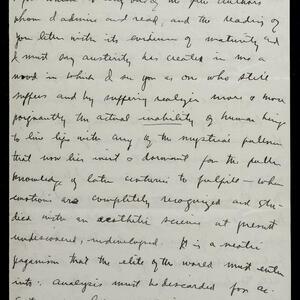 of the few authors
whom I admire and read, and the reading of
your letter with its evidence of maturity and
I must say austerity has created in me a
mood in which I see you as one who still
suffers and by suffering realizes more & more
poignantly the actual inability of human beings
to live up with any of the mystical patterns
that now lies inert & dormant for the
knowledge of later centuries to fulfill — when
emotions are completely recognized and stu-
died with an aesthetic science at present
undiscovered, undeveloped. It is a
paganism that the elite of the world must enter
into: analysis must be discarded for ac-